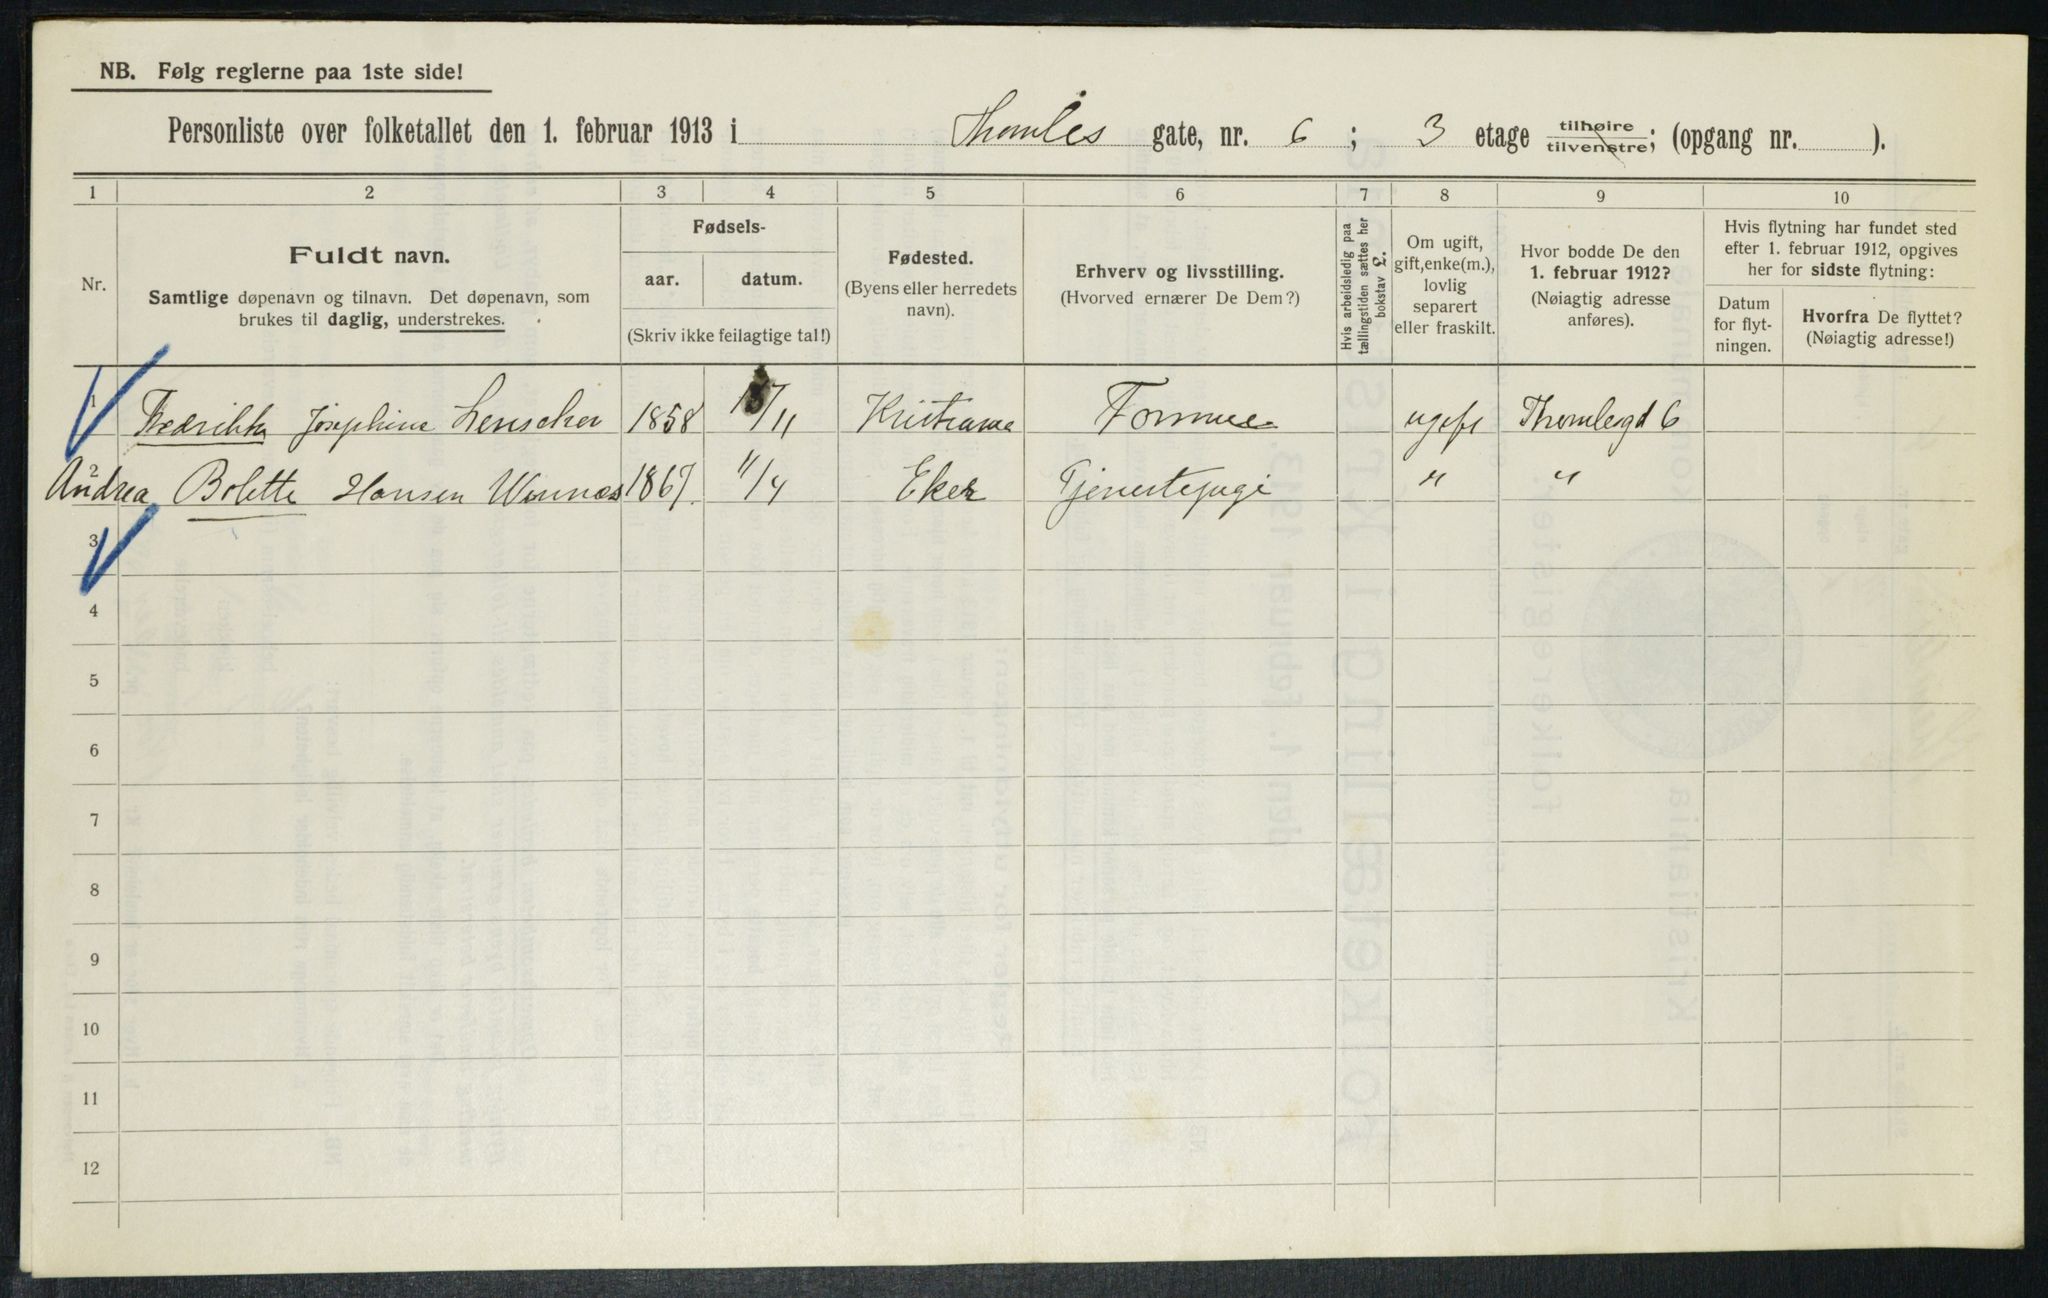 NB. Følg reglerne paa 1ste side!
Personliste over folketallet den 1. februar 1913 i Thomles gate, nr. 6; 3 etage tilhøire tilvenstre; (opgang nr. ).
1 2 3 4 5 6 7 8 9 10
Nr.
Fuldt navn.
Samtlige døpenavn og tilnavn. Det døpenavn, som
brukes til daglig, understrekes.
Fødsels-
aar. datum.
(Skriv ikke feilagtige tal!)
Fødested.
(Byens eller herredets
navn).
Erhverv og livsstilling.
(Hvorved ernærer De Dem?)
Hvis arbeidsledig paa
tællingstiden sættes her
bokstav L.
Om ugift,
gift, enke(m.),
lovlig
separert
eller fraskilt.
Hvor bodde De den
1. februar 1912?
(Nøiagtig adresse
anføres).
Hvis flytning har fundet sted
efter 1. februar 1912, opgives
her for sidste flytning:
Datum
for flyt-
ningen.
Hvorfra De flyttet?
(Nøiagtig adresse!)
1 Fredrikka Josephine 1858 /11 Kristiania Formue ugift Thomlesgd 6
2 Andrea Bolette Hansen 1867. 11/4 Eker Tjenestepige " "
3
4
5
6
7
8
9
10
11
12